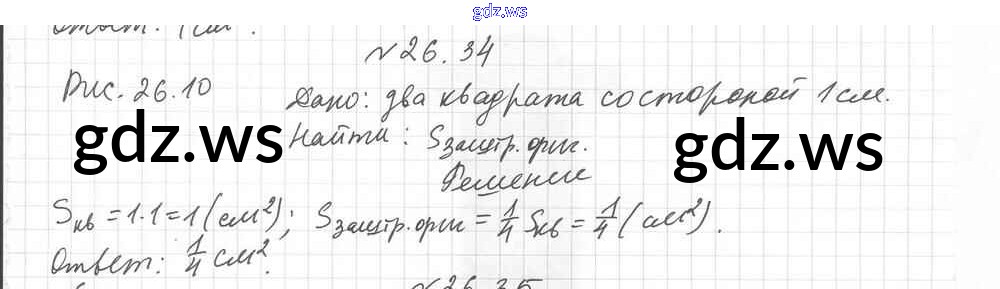 gdz.ws
Ответ: 1 см².
№26.34
Рис. 26.10 Дано: два квадрата со стороной 1 см.
gdz.ws Найти: Sзаштр. фиг. gdz.ws
Решение
Sкв = 1·1 = 1 (см²); Sзаштр. фиг = 1/4 Sкв = 1/4 (см²).
Ответ: 1/4 см².
№26.35